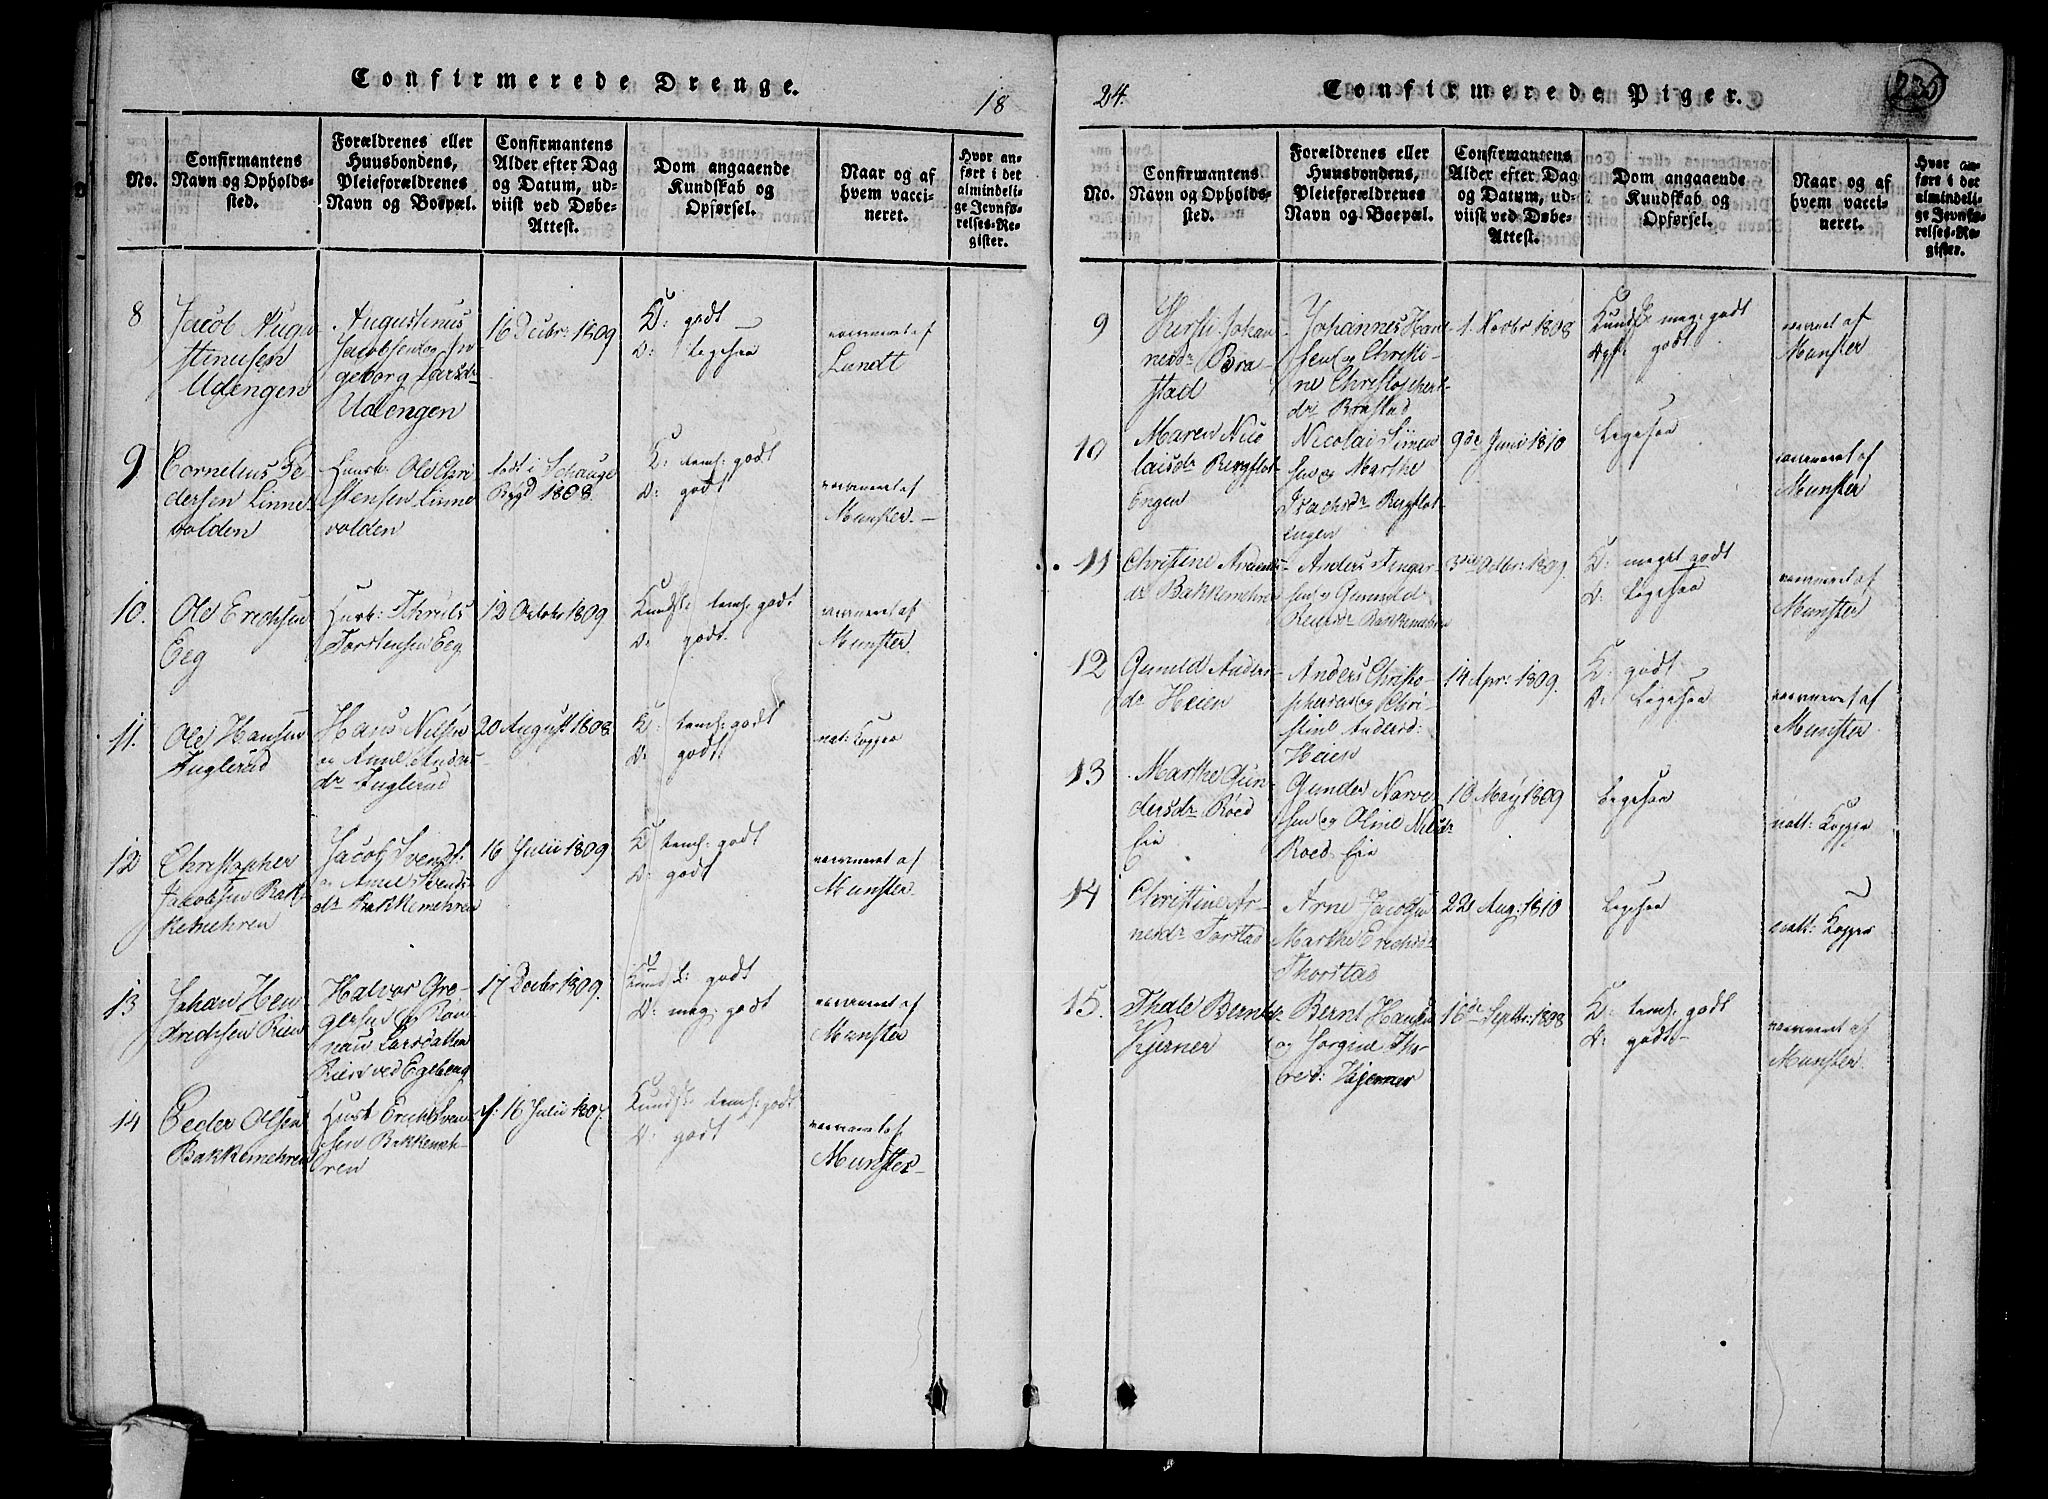 Confirmerede Drenge.
18
No.
Confirmantens
Navn og Opholds-
sted.
Forældrenes eller
Huusbondens,
Pleieforældrenes
Navn og Boepæl.
Confirmantens
Alder efter Dag
og Datum, ud-
viist ved Døbe-
Attest.
Dom angaaende
Kundskab og
Opførsel.
Naar og af
hvem vacci-
neret.
Hvor an-
ført i det
almindeli-
ge Jevnfø-
relses-Re-
gister.
8
Jacob Augu
stinusen
Udengen
Augustinus
Jacobsen og In
geborg Larsdr
Udengen
16 Decbr: 1809
K: godt
O: ligesaa
vaccineret af
Lundt
9
Cornelius Pe
dersen Linne
volden
Huusb: Ole Chri
stensen Linne
volden
født i Schouge
Bygd 1808
K: tem: godt
O: godt
vaccineret af
Munster
10.
Ole Erichsen
Eeg
Husb: Thruls
Torstensen Eeg
12 Octobr 1809
Kundsk: tem: godt
O: godt.
vaccineret af
Munster
11.
Ole Hansen
Fuglerud
Hans Nilsen
og Anne Anders
dr Fuglerud
20 August 1808
K: tem: godt
O: godt
nat: Kopper
12
Christopher
Jacobsen Bak
kemehren
Jacob Svends:
og Anne Svends
dr Bakkemehren
16 Julii 1809
K tem: godt
O: godt
vaccineret af
Munster
13
Johan Hen
drichsen Rien
Halvor Gre-
gersen og Ran
Larsdatter
Rien ved Egeberg
17 Decbr 1809.
Kundsk: godt
O: meg: godt
vaccineret af
Munster
14
Peder Olsen
Bakkemehren
Husb Erich Sven
sen Bakkemeh-
ren
f: 16 Julii 1807.
Kundsk: tem: godt
O: godt
vaccineret af
Munster
24.
Confirmerede Piger.
235
No.
Confirmantens
Navn og Opholds-
sted.
Forældrenes eller
Huusbondens,
Pleieforældrenes
Navn og Boepæl.
Confirmantens
Alder efter Dag
og Datum, ud-
viist ved Døbe-
Attest.
Dom angaaende
Kundskab og
Opførsel.
Naar og af
hvem vacci-
neret.
Hvor an-
ført i det
almindeli-
ge Jevnfø-
relses-Re-
gister.
9
Johan
nesdr Bra-
stad
Johannes Han
sen og Christi-
ne Christophers
dr Brastad
1. Novbr 1808
Kundsk meg: godt
Opf: godt
vaccineret af
Munster
10
Maren Nico
laisdr Bergflot
Engen
Nicolai Simen
sen og Marthe
Isachsdr Bergflot
engen
9de Juni 1810
ligesaa
vaccineret af
Munster
11
Christine Anders
dr Bakkemehren
Anders Tinger
sen og Gunnild
Bakkemehren
3die Octbr: 1809.
K: meget godt
O: ligesaa
vaccineret af
Munster
12
Gunild Anders
dr Heien
Anders Christo-
phersen og Chri-
stine Andersd:
Heien
14 Apr: 1809.
K: godt
O: ligesaa
vaccineret af
Munster
13
Marthe Gun
dersdr Röed
Eie
Gunder Narve
sen og Oline Nilsdr
Roed Eie
10 May 1809
ligesaa
natt: Kopper
14
Christine Ar-
nesdr Torstad
Arne Jacobsen
Marthe Erichsdr
Thorstad
22 Aug: 1810
ligesaa
natt: Kopper
15.
Thale Berntsdr
Kjerner
Bernt Hansen
og Jorgine Tho-
resd: Kjerner
16de Septbr: 1808
K: tem: godt
O: godt
vaccineret af
Munster